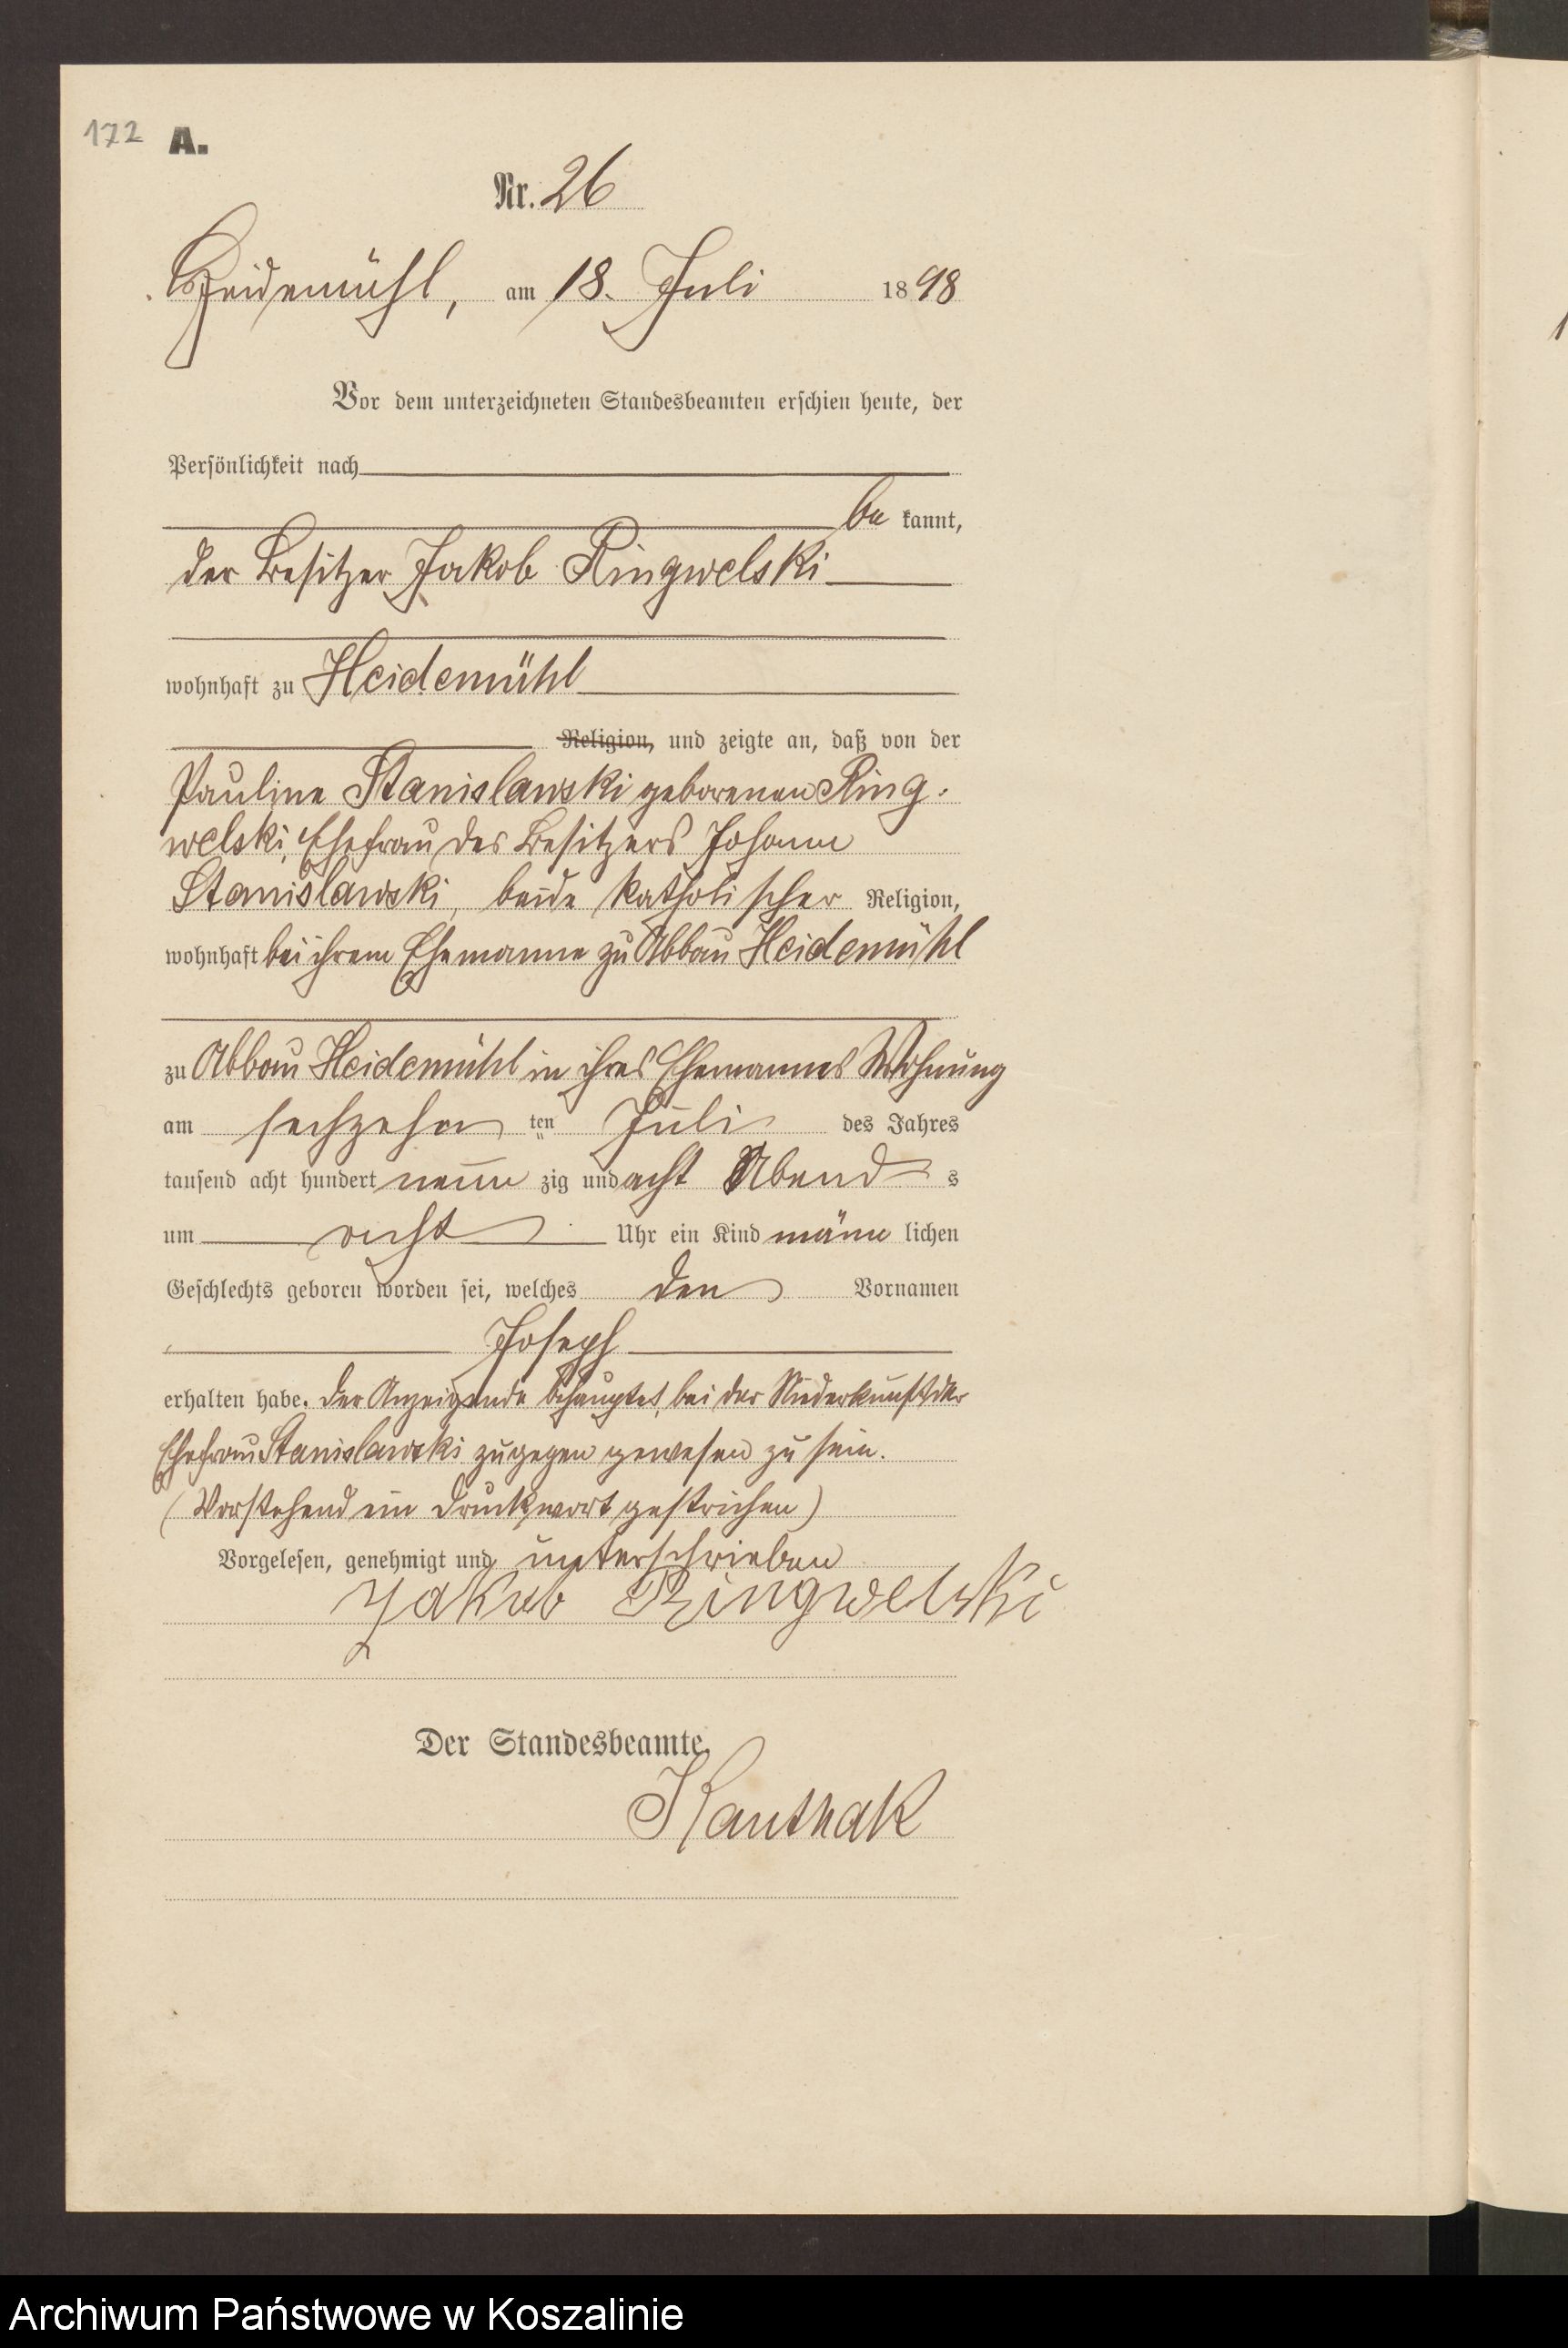 172 A.
Nr. 26
Heidemühl, am 18. Juli 1898
Vor dem unterzeichneten Standesbeamten erschien heute, der
Persönlichkeit nach
be kannt,
der Besitzer Jakob Ringwelski
wohnhaft zu Heidemühl
Religion, und zeigte an, daß von der
Pauline Stanislawski geborenen Ring-
welski, Ehefrau des Besitzers Johann
Stanislawski, beide katholischer Religion,
wohnhaft bei ihrem Ehemanne zu Abbau Heidemühl
zu Abbau Heidemühl in ihres Ehemannes Wohnung
am sechzehn ten Juli des Jahres
tausend acht hundert neun zig und acht Abend s
um acht Uhr ein Kind männ lichen
Geschlechts geboren worden sei, welches den Vornamen
Joseph
erhalten habe. Der Anzeigende behauptet, bei der Niederkunft der
Ehefrau Stanislawski zugegen gewesen zu sein.
(Vorstehend ein Druckwort gestrichen)
Vorgelesen, genehmigt und unterschrieben
Jakob Ringwelski
Der Standesbeamte.
Kanthak
Archiwum Państwowe w Koszalinie